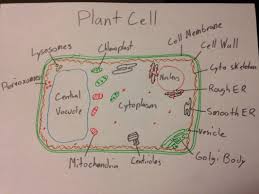 Plant Cell
Lysosomes
Chloroplast
Cell Membrane
Cell Wall
Cyto skeleton
Peroxisomes
Central
Vacuole
Cytoplasm
Rough ER
Smooth ER
Vesicle
Golgi Body
Mitochondria
Centrioles